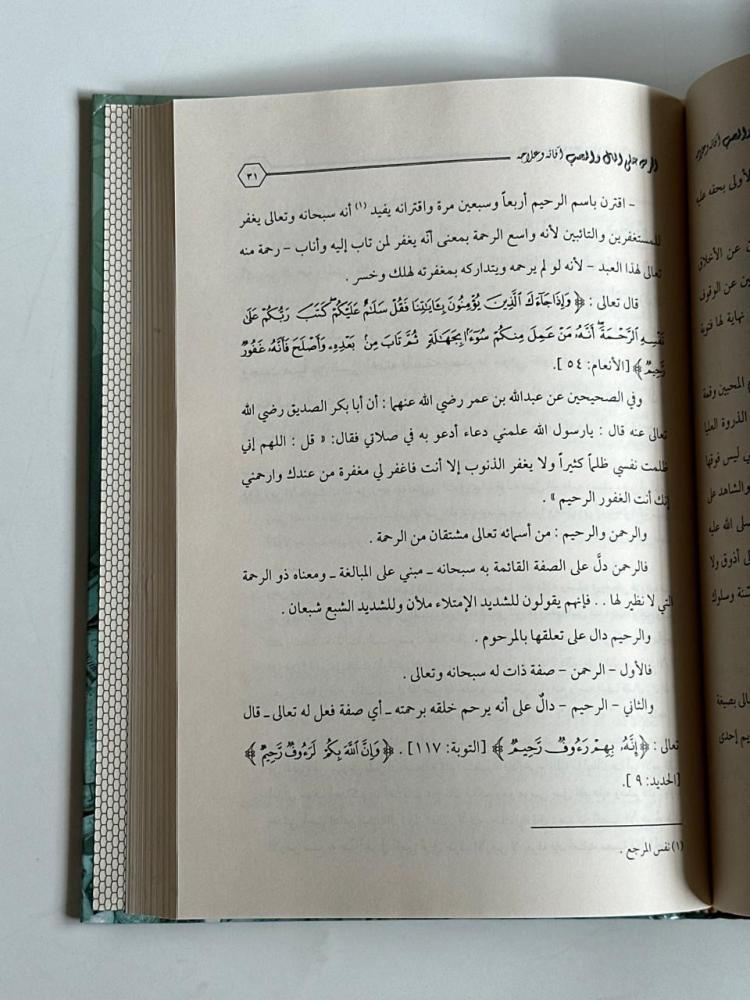 المال والمنصب آفاته وعلاجه
٣١
- اقترن باسم الرحيم أربعاً وسبعين مرة واقترانه يفيد (١) أنه سبحانه وتعالى يغفر
للمستغفرين والتائبين لأنه واسع الرحمة بمعنى أنّه يغفر لمن تاب إليه وأناب - رحمة منه
تعالى لهذا العبد - لأنه لو لم يرحمه ويتداركه بمغفرته لهلك وخسر .
قال تعالى : ﴿ وَإِذَا جَآءَكَ ٱلَّذِينَ يُؤْمِنُونَ بِـَٔايَٰتِنَا فَقُلْ سَلَٰمٌ عَلَيْكُمْ ۖ كَتَبَ رَبُّكُمْ عَلَىٰ
نَفْسِهِ ٱلرَّحْمَةَ ۖ أَنَّهُۥ مَنْ عَمِلَ مِنكُمْ سُوٓءًۢا بِجَهَٰلَةٍ ثُمَّ تَابَ مِنۢ بَعْدِهِۦ وَأَصْلَحَ فَأَنَّهُۥ غَفُورٌ
رَّحِيمٌ ﴾ [الأنعام: ٥٤ ].
وفي الصحيحين عن عبدالله بن عمر رضي الله عنهما : أن أبا بكر الصديق رضي الله
تعالى عنه قال : يارسول الله علمني دعاء أدعو به في صلاتي فقال: « قل : اللهم إني
ظلمت نفسي ظلماً كثيراً ولا يغفر الذنوب إلا أنت فاغفر لي مغفرة من عندك وارحمني
إنك أنت الغفور الرحيم » .
والرحمن والرحيم : من أسمائه تعالى مشتقان من الرحمة .
فالرحمن دلَّ على الصفة القائمة به سبحانه ـ مبني على المبالغة ـ ومعناه ذو الرحمة
التي لا نظير لها . . فإنهم يقولون للشديد الإمتلاء ملأن وللشديد الشبع شبعان .
والرحيم دال على تعلقها بالمرحوم .
فالأول - الرحمن - صفة ذات له سبحانه وتعالى .
والثاني - الرحيم - دالٌ على أنه يرحم خلقه برحمته ـ أي صفة فعل له تعالى ـ قال
تعالى : ﴿ إِنَّهُۥ بِهِمْ رَءُوفٌ رَّحِيمٌ ﴾ [التوبة: ١١٧] . ﴿ وَإِنَّ ٱللَّهَ بِكُمْ لَرَءُوفٌ رَّحِيمٌ ﴾
[الحديد: ٩ ].
(١) نفس المرجع .